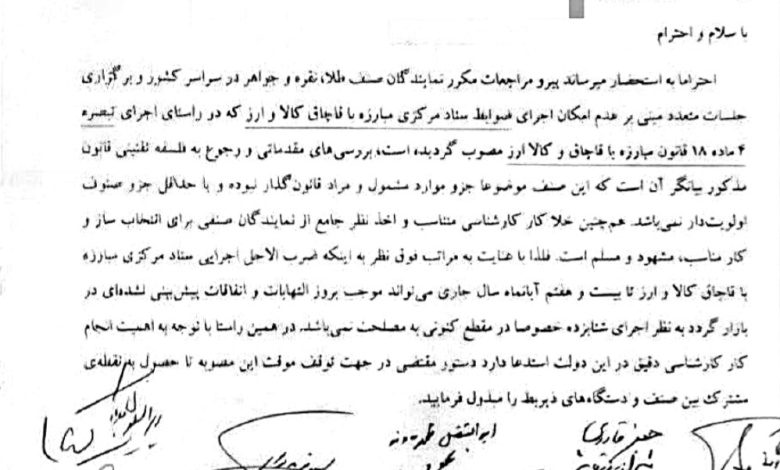 با سلام و احترام
احتراما به استحضار میرساند پیرو مراجعات مکرر نمایندگان صنف طلا، نقره و جواهر در سراسر کشور و برگزاری
جلسات متعدد مبنی بر عدم امکان اجرای ضوابط ستاد مرکزی مبارزه با قاچاق کالا و ارز که در راستای اجرای تبصره
۴ ماده ۱۸ قانون مبارزه با قاچاق و کالا ارز مصوب گردیده است، بررسی‌های مقدماتی و رجوع به فلسفه تقنینی قانون
مذکور بیانگر آن است که این صنف موضوعا جزو موارد مشمول و مراد قانون‌گذار نبوده و یا حداقل جزو صنوف
اولویت‌دار نمی‌باشد. هم‌چنین خلا کار کارشناسی متناسب و اخذ نظر جامع از نمایندگان صنفی برای انتخاب ساز و
کار مناسب، مشهود و مسلم است. فلذا با عنایت به مراتب فوق نظر به اینکه ضرب الاجل اجرایی ستاد مرکزی مبارزه
با قاچاق کالا و ارز تا بیست و هفتم آبانماه سال جاری می‌تواند موجب بروز التهابات و اتفاقات پیش‌بینی نشده‌ای در
بازار گردد به نظر اجرای شتابزده خصوصا در مقطع کنونی به مصلحت نمی‌باشد. در همین راستا با توجه به اهمیت انجام
کار کارشناسی دقیق در این دولت استدعا دارد دستور مقتضی در جهت توقف موقت این مصوبه تا حصول به نقطه‌ی
مشترک بین صنف و دستگاه‌های ذیربط را مبذول فرمایید.